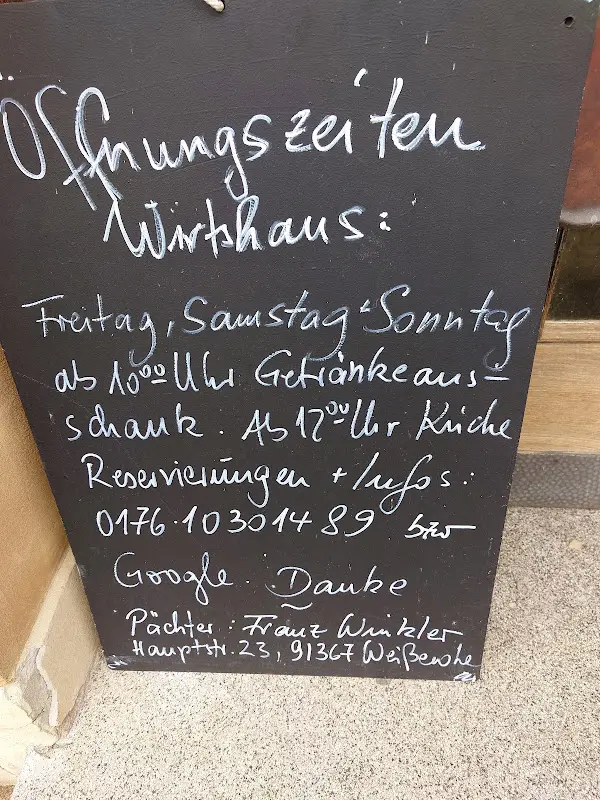 Öffnungszeiten
Wirtshaus:
Freitag, Samstag + Sonntag
ab 10⁰⁰ Uhr Getränkeaus-
schank. Ab 12⁰⁰ Uhr Küche
Reservierungen + Infos:
0176.10301489 bzw
Google. Danke
Pächter: Franz Winkler
Hauptstr. 23, 91367 Weißenohe